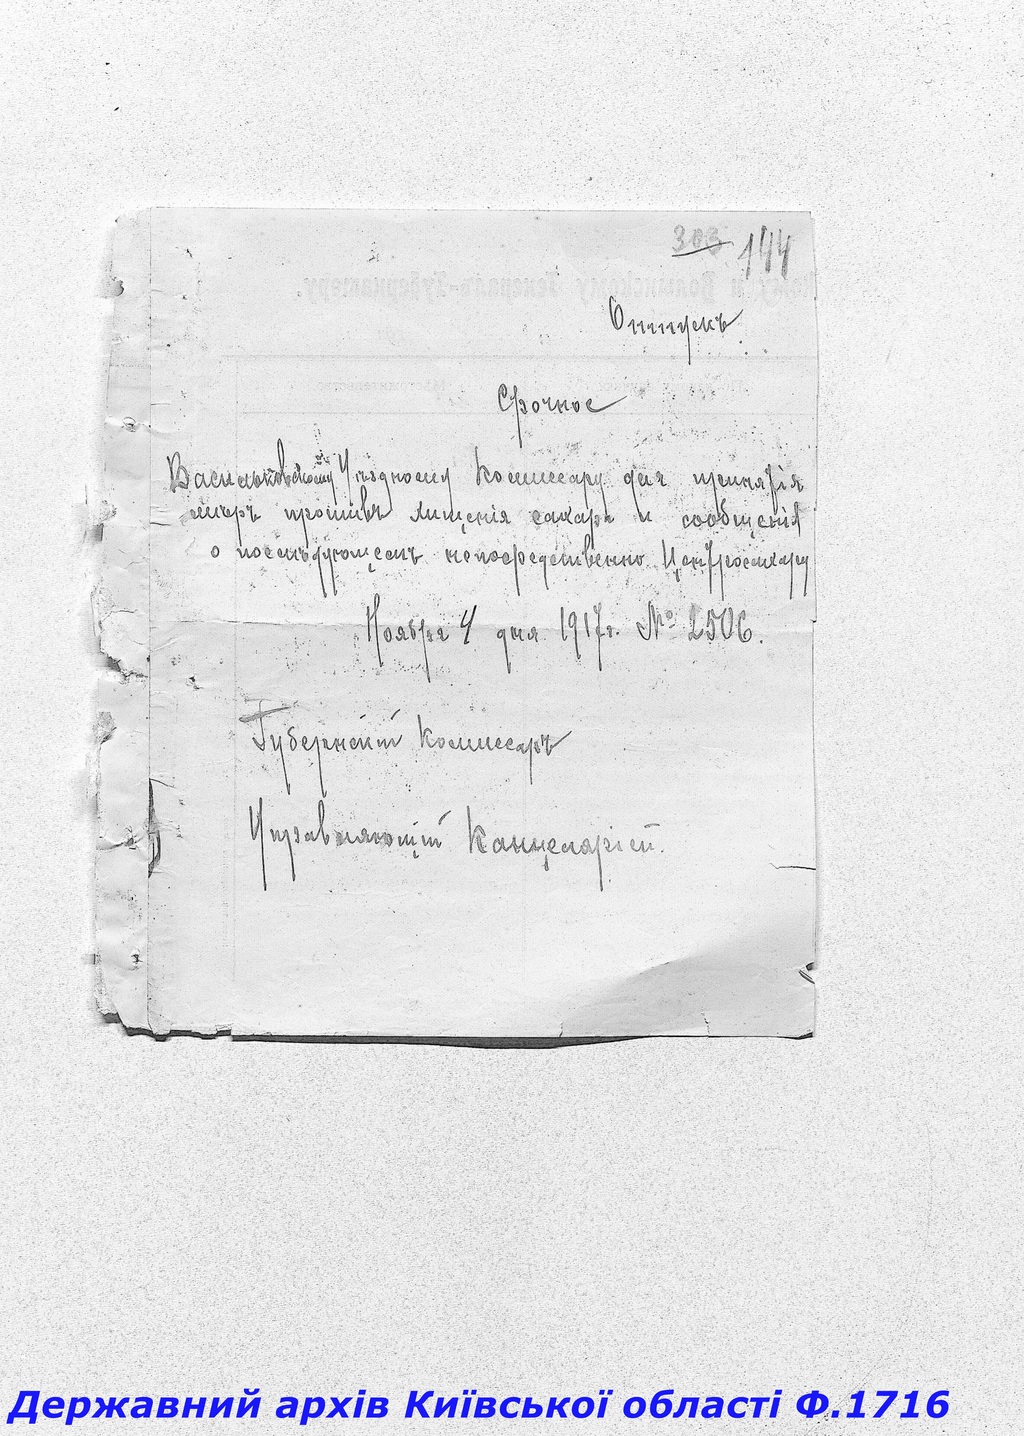 303 144
Отпускъ
Срочное
Васильковскому Уѣздному Комиссару для принятія
мѣръ противъ хищенія сахара и сообщенія
о послѣдующемъ непосредственно Центросахару
Ноября 4 дня 1917 г. № 2506.
Губернскій Комиссаръ
Управляющій Канцеляріей.
Державний архів Київської області Ф.1716